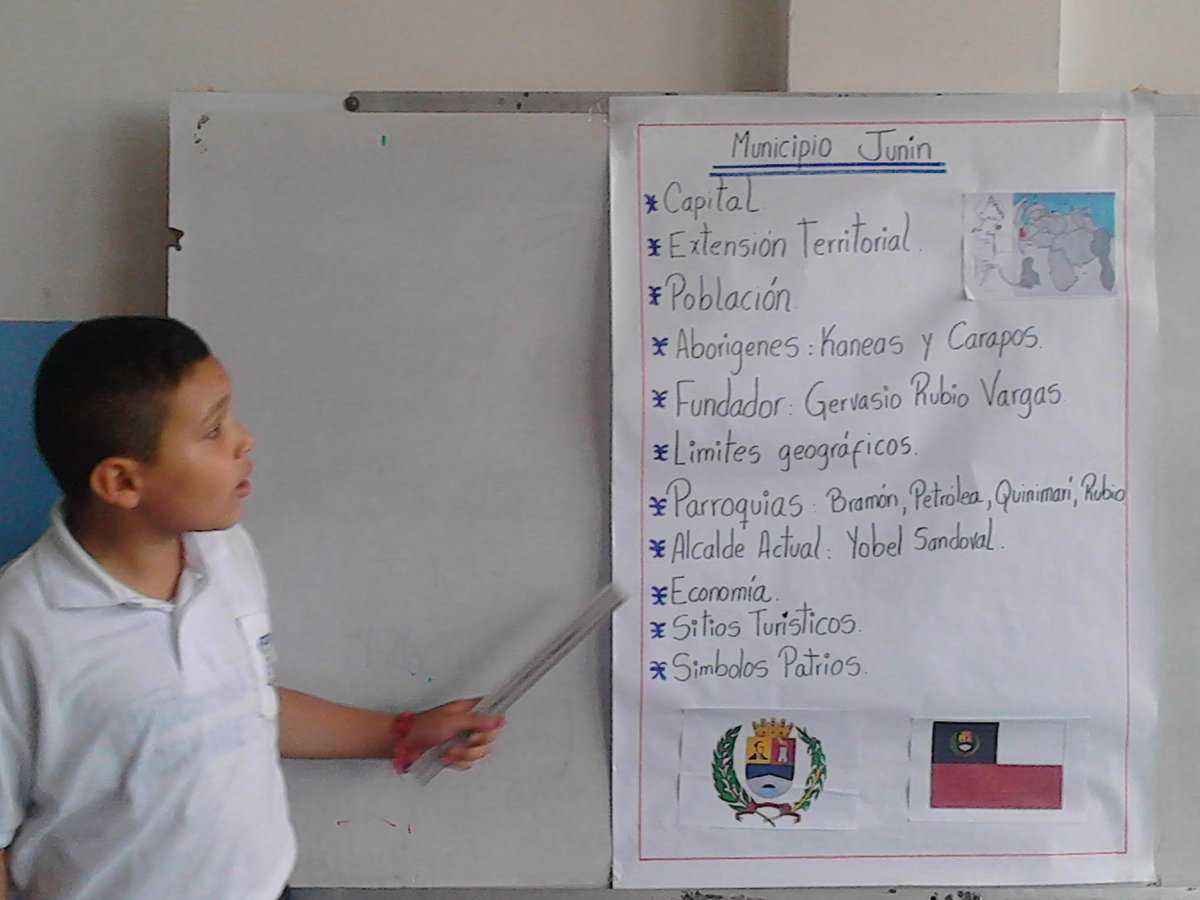 Municipio Junin
Capital.
Extensión Territorial.
Población.
Aborigenes: Kaneas y Carapos.
Fundador: Gervasio Rubio Vargas
Limites geográficos.
Parroquias: Bramón, Petrólea, Quinimarí, Rubio
Alcalde Actual: Yobel Sandoval.
Economía.
Sitios Turisticos.
Simbolos Patrios.